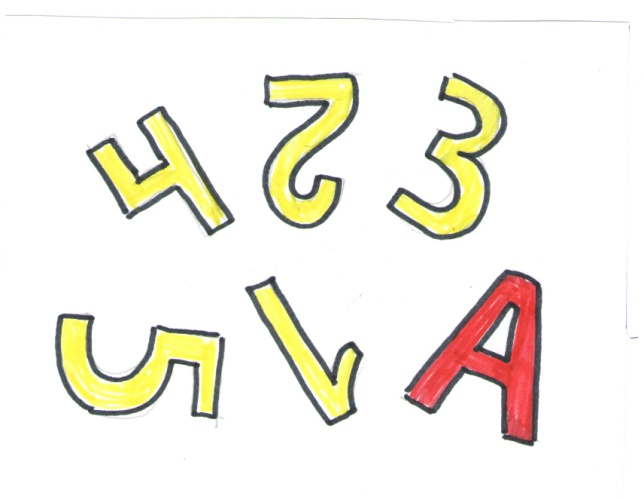 4 2 3
5 1 A